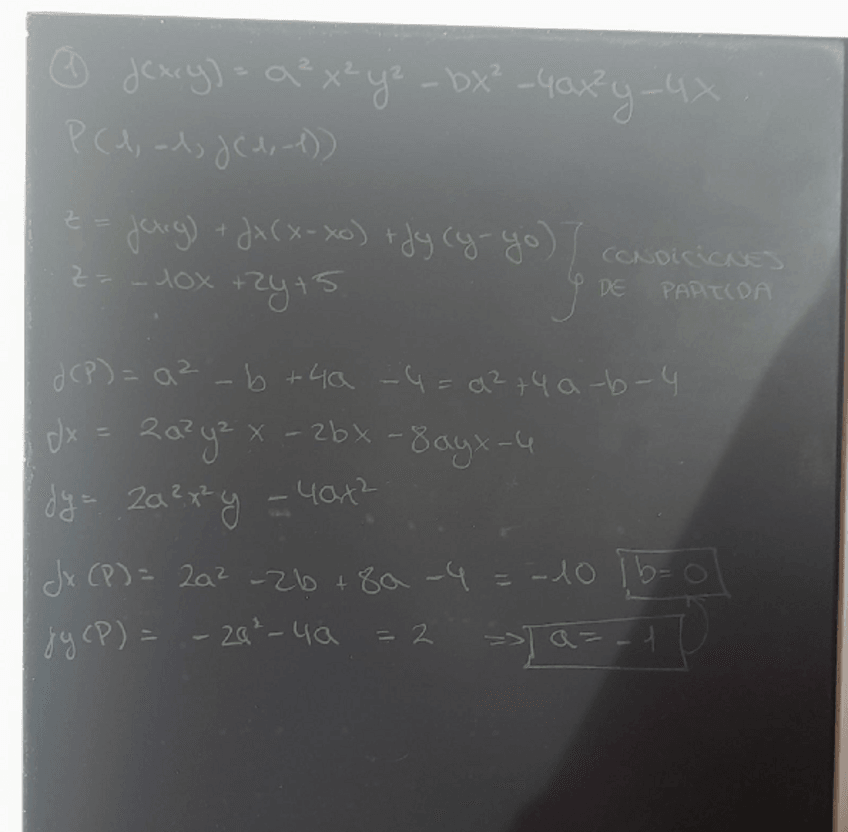 ① f(x,y) = a² x² y² - bx² - 4ax²y - 4x
P(1, -1, f(1,-1))
z = f(x,y) + fx(x-x0) + fy(y-y0)
z = -10x + 2y + 5
CONDICIONES
DE PARTIDA
f(P) = a² - b + 4a - 4 = a² + 4a - b - 4
fx = 2a²y² x - 2bx - 8ayx - 4
fy = 2a²x²y - 4ax²
fx(P) = 2a² - 2b + 8a - 4 = -10 b = 0
fy(P) = - 2a² - 4a = 2 => a = -1